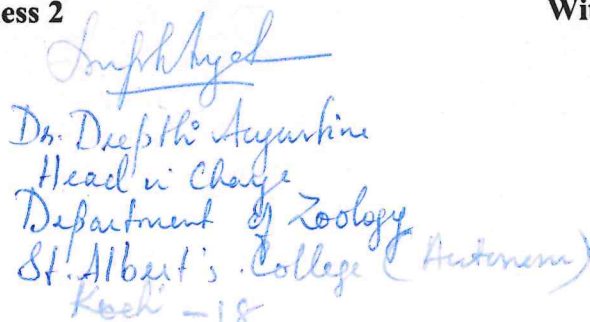 ess 2 Wit
Dr. Deepthi Augustine
Head in Charge
Department of Zoology
St. Albert's College (Autonomous)
Kochi - 18